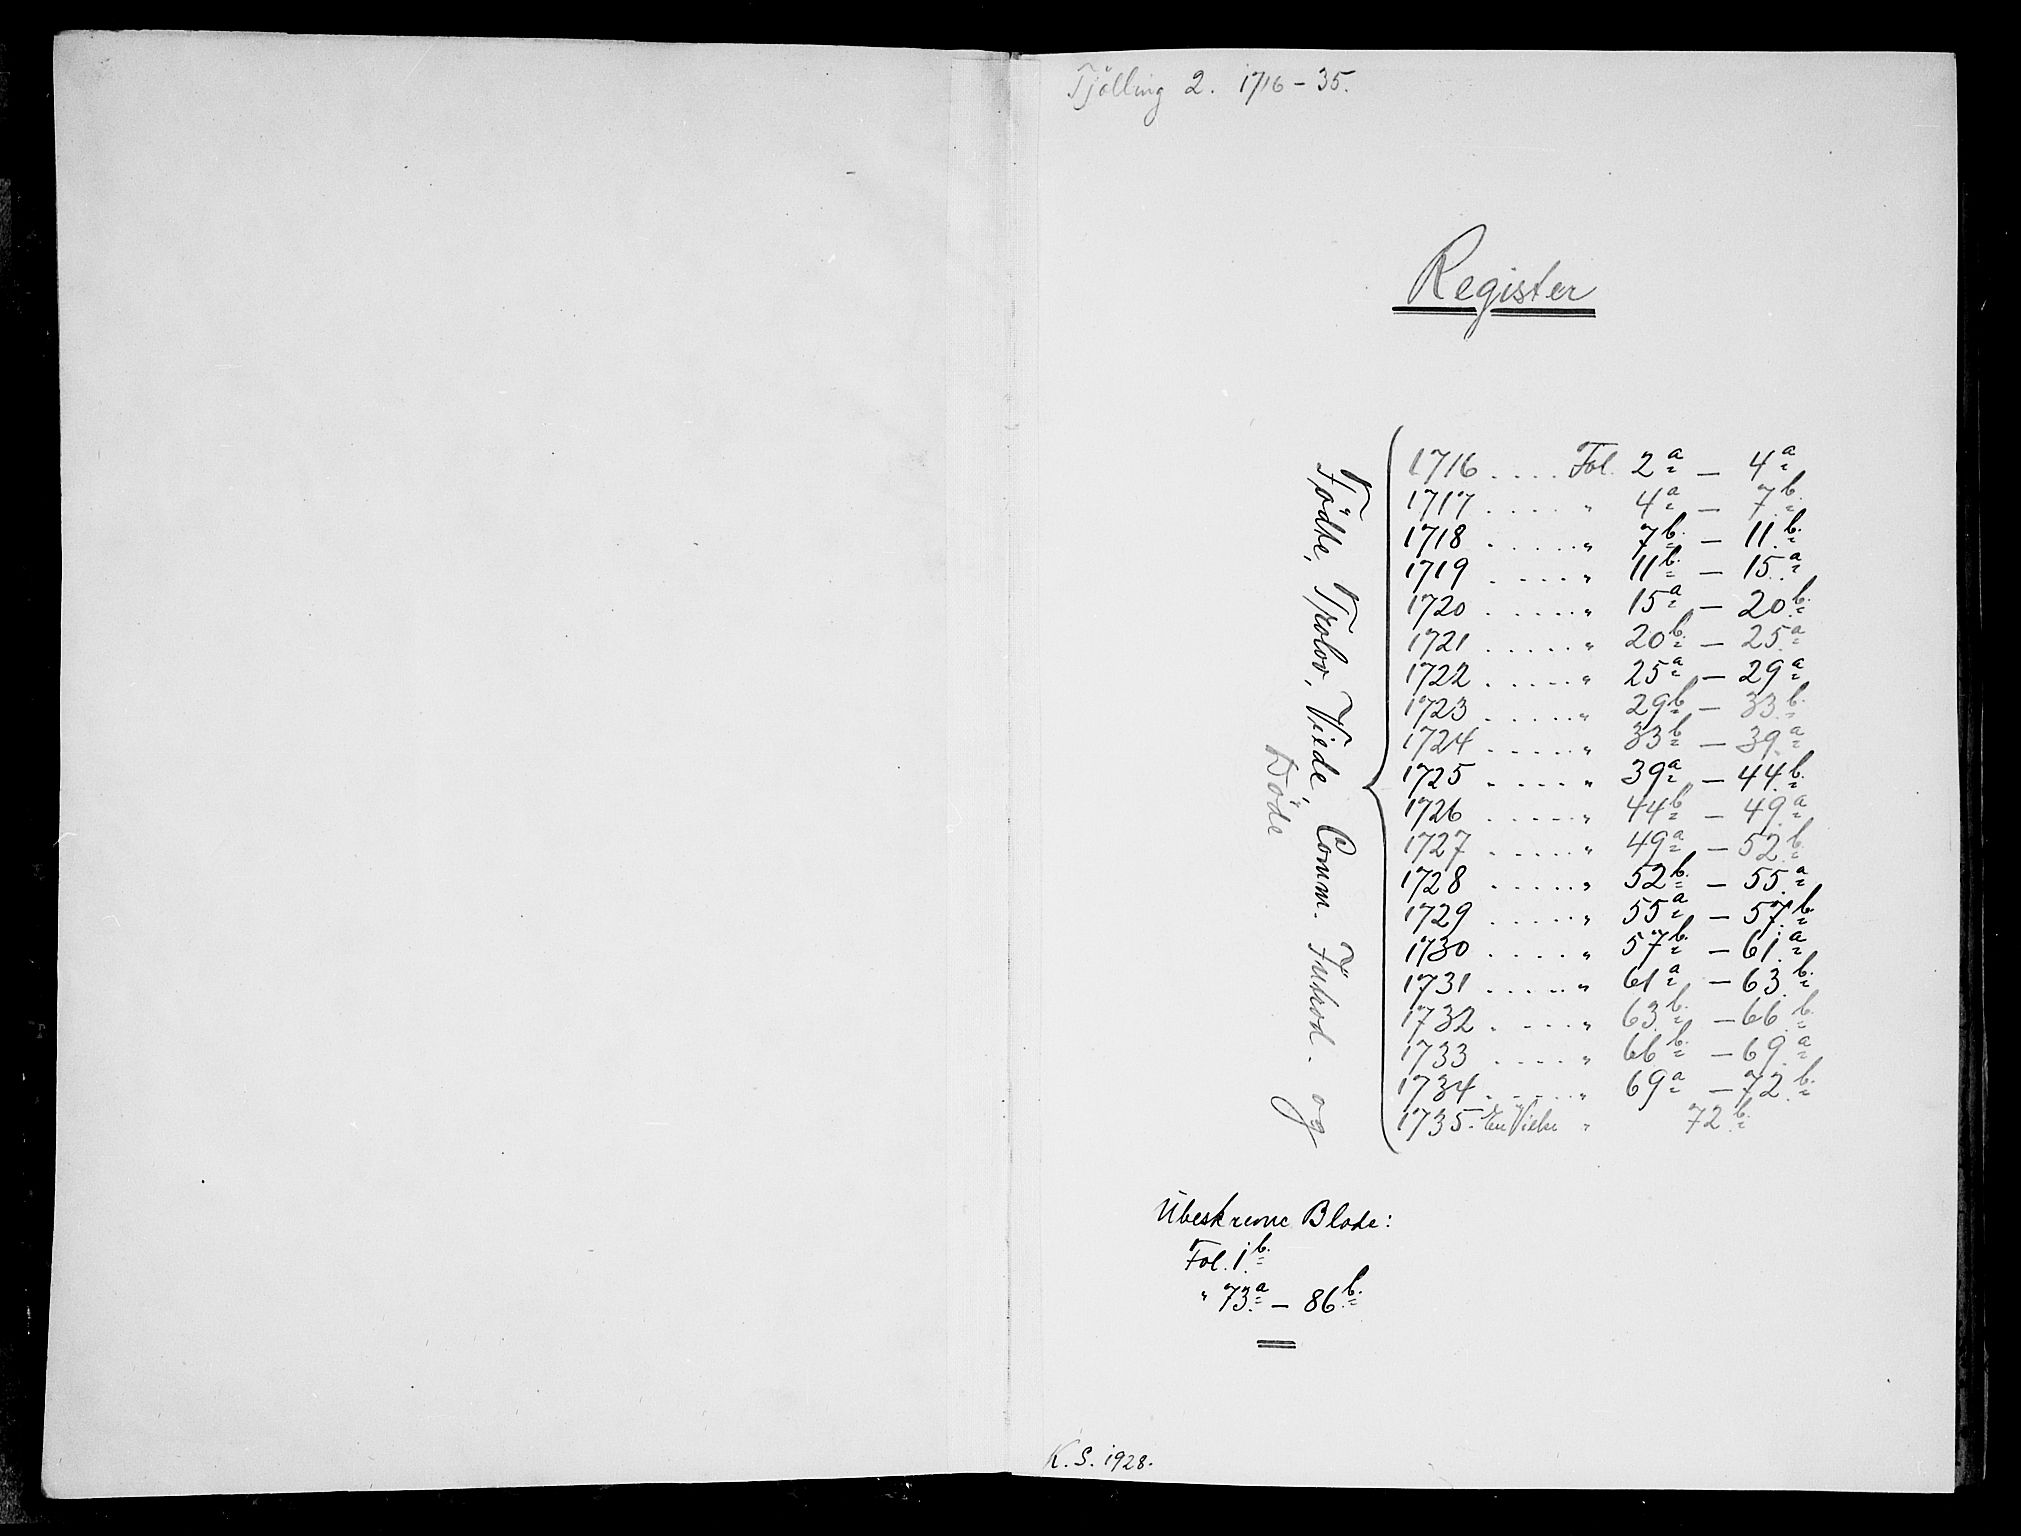 Tjölling 2. 1716 – 35.
Register
Födte, Trolov, Viede, Comm. Introd. og
Döde
1716 . . . . Fol. 2a – 4a
1717 . . . . " 4a – 7b
1718 . . . . . " 7b – 11b
1719 . . . . . " 11b – 15a
1720 . . . . . " 15a – 20b
1721 . . . . . " 20b – 25a
1722 . . . . . " 25a – 29a
1723 . . . . . " 29b – 33b
1724 . . . . . " 33b – 39a
1725 . . . . . " 39a – 44b
1726 . . . . . " 44b – 49a
1727 . . . . . " 49a – 52b
1728 . . . . . " 52b – 55a
1729 . . . . . " 55a – 57b
1730 . . . . . " 57b – 61a
1731 . . . . . " 61a – 63b
1732 . . . . . " 63b – 66b
1733 . . . . . " 66b – 69a
1734 . . . . . " 69a – 72b
1735. En Vielse " 72b
Ubeskrevne Blade:
Fol. 1b
" 73a – 86b
K. S. 1928.